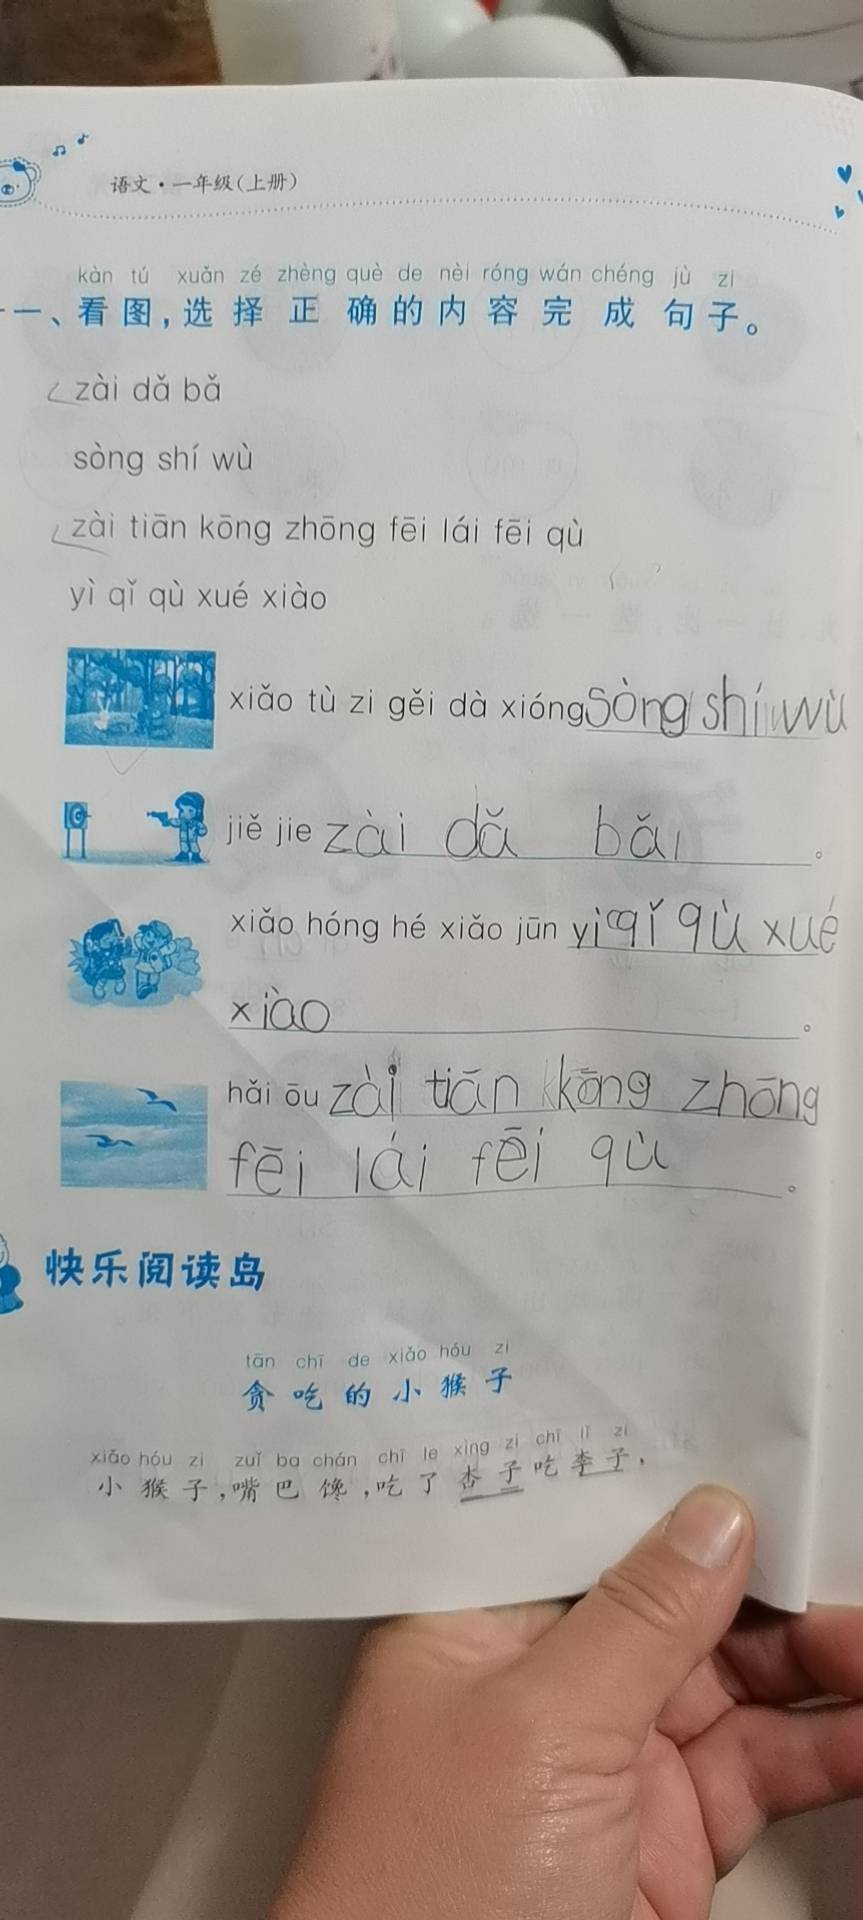 语文·一年级(上册)
kàn tú xuǎn zé zhèng què de nèi róng wán chéng jù zi
一、看图,选择正确的内容完成句子。
zài dǎ bǎ
sòng shí wù
zài tiān kōng zhōng fēi lái fēi qù
yì qǐ qù xué xiào
xiǎo tù zi gěi dà xióng sòng shí wù
jiě jie zài dǎ bǎi。
xiǎo hóng hé xiǎo jūn yì qǐ qù xué
xiào。
hǎi ōu zài tiān kōng zhōng
fēi lái fēi qù。
快乐阅读岛
tān chī de xiǎo hóu zi
贪吃的小猴子
xiǎo hóu zi zuǐ ba chán chī le xìng zi chī lǐ zi
小猴子,嘴巴馋,吃了杏子吃李子,